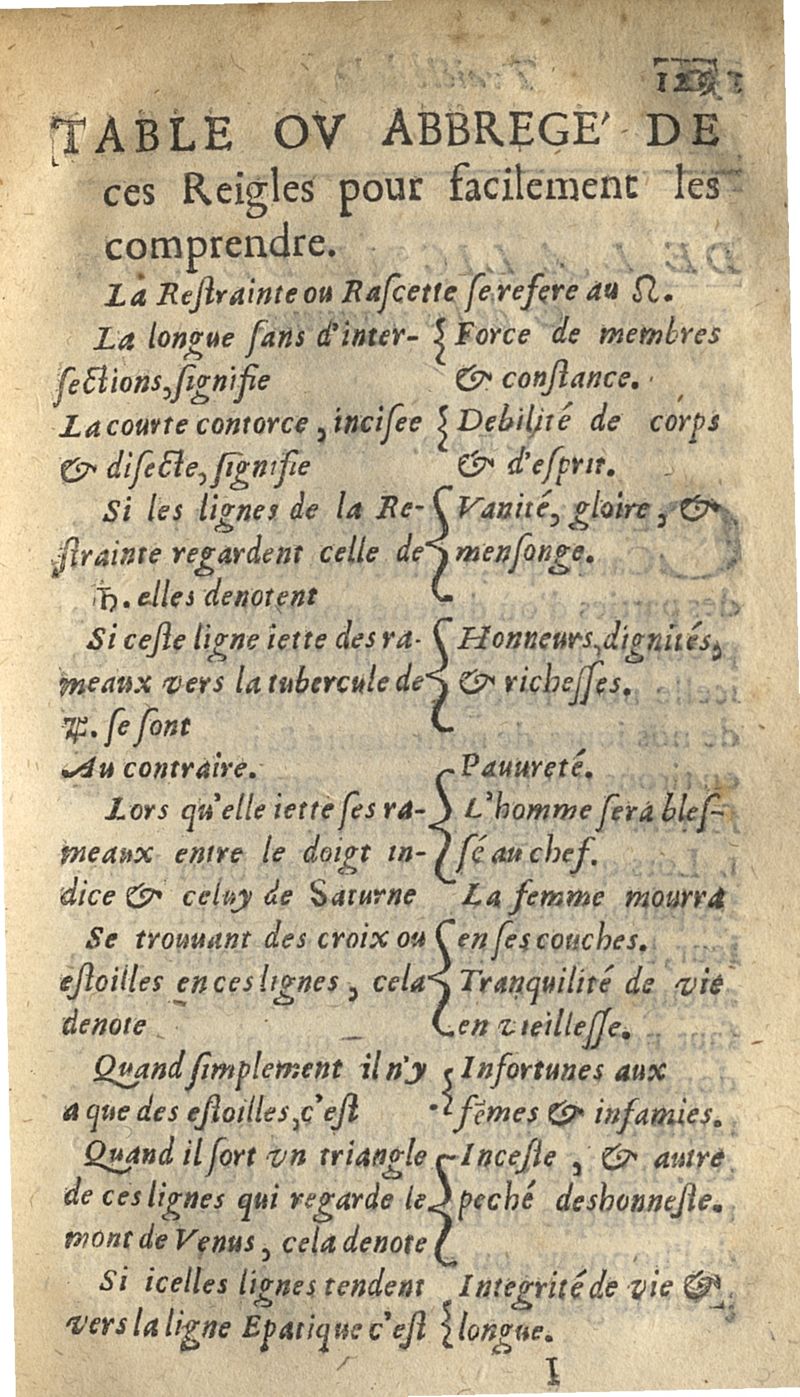 TABLE OV ABBREGE' DE
ces Reigles pour facilement les
comprendre.
La Reſtrainte ou Raſcette ſe refere au ☊.
La longue ſans d'inter- { Force de membres
ſections, ſignifie & conſtance.
La courte contorce, inciſee { Debilité de corps
& diſecte, ſignifie & d'eſprit.
Si les lignes de la Re- { Vanité, gloire, &
ſtrainte regardent celle de menſonge.
♄. elles denotent
Si ceſte ligne iette des ra- { Honneurs, dignités,
meaux vers la tubercule de & richeſſes.
♃. ſe ſont
Au contraire. Pauureté.
Lors qu'elle iette ſes ra- { L'homme ſera bleſ-
meaux entre le doigt in- ſé au chef.
dice & celuy de Saturne La femme mourra
Se trouuant des croix ou { en ſes couches.
eſtoilles en ces lignes, cela Tranquilité de vie
denote en vieilleſſe.
Quand ſimplement il n'y { Infortunes aux
a que des eſtoilles, c'eſt fẽmes & infamies.
Quand il ſort vn triangle { Inceſte, & autre
de ces lignes qui regarde le peché deshonneſte.
mont de Venus, cela denote
Si icelles lignes tendent Integrité de vie &
vers la ligne Epatique c'eſt { longue.
I